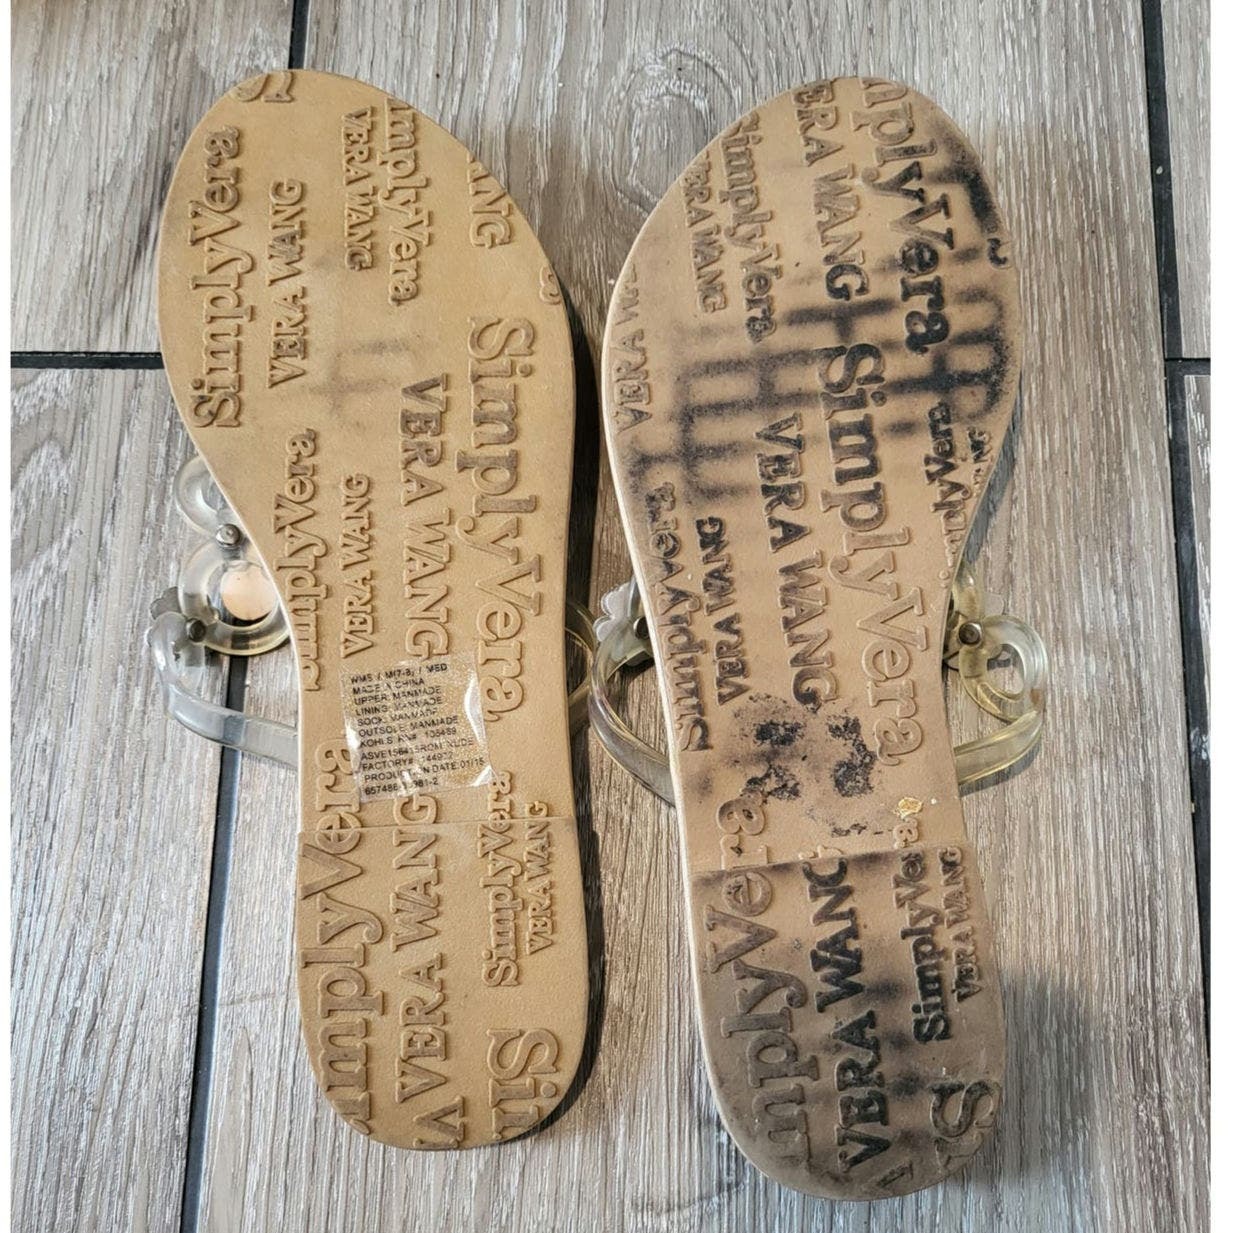 S
SimplyVera
VERA WANG
implyVera
VERA WANG
ANG
a
SimplyVera
VERA WANG
SimplyVera
VERA WANG
WMS / M(7-8) / MED
MADE IN CHINA
UPPER: MANMADE
LINING: MANMADE
SOCK: MANMADE
OUTSOLE: MANMADE
KOHL'S RN# 105469
FACTORY#
PRODUCTION DATE:01/15
SimplyVera
VERA WANG
implyVera
A VERA WANG
Sim
mplyVera
ERA WANG
SimplyVera
VERA WANG
VERA W
SimplyVera
VERA WANG
implyVera
ANG
SimplyVera
VERA WANG
SimplyVera
VERA WANG
implyVera
VERA WANG
S